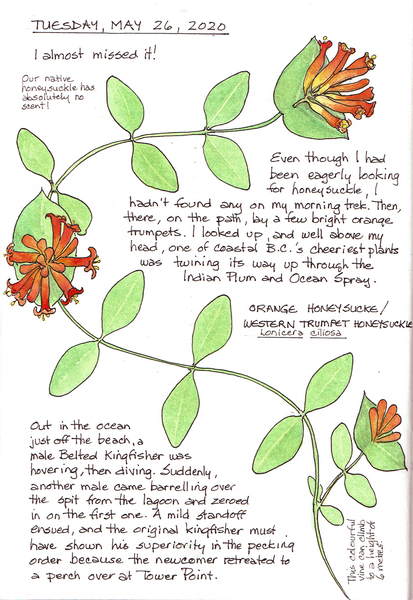 TUESDAY, MAY 26, 2020
I almost missed it!
Our native
honeysuckle has
absolutely no
scent!
Even though I had
been eagerly looking
for honeysuckle, I
hadn't found any on my morning trek. Then,
there, on the path, lay a few bright orange
trumpets. I looked up, and well above my
head, one of coastal B.C.'s cheeriest plants
was twining its way up through the
Indian Plum and Ocean Spray.
ORANGE HONEYSUCKE/
WESTERN TRUMPET HONEYSUCKLE
Lonicera ciliosa
Out in the ocean
just off the beach, a
male Belted Kingfisher was
hovering, then diving. Suddenly,
another male came barrelling over
the spit from the lagoon and zeroed
in on the first one. A mild standoff
ensued, and the original kingfisher must
have shown his superiority in the pecking
order because the newcomer retreated to
a perch over at Tower Point.
This colourful
vine can climb
to a height of
6 metres!